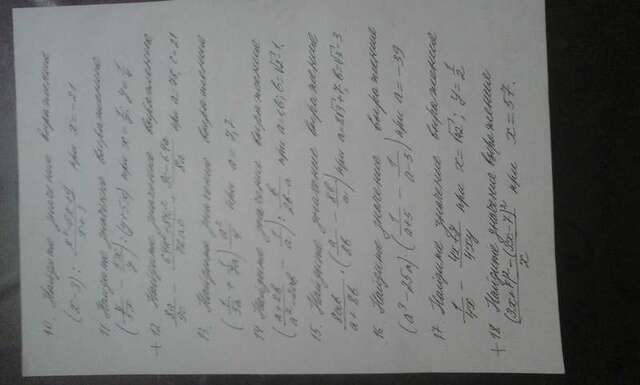 10 Найдите значение выражения
(x-3) : (x²-6x+9)/(x+3) при x=-21
11 Найдите значение выражения
(y/5x - 5x/y) : (y+5x) при
+ 12 Найдите значение выражения
8a/9c - при a=78, c=21
13. Найдите значение выражения
a²/4 при a=7,7
14 Найдите значение выражения
((a+2b)/(a²-2ab) - 1/a) : b/(2b-a) при
15. Найдите значение выражения
8ab/(a+8b) · (a/8b - 8b/a) при a=8√3+7, b=√3-3
16 Найдите значение выражения
(a³-25a) (1/(a+5) - 1/(a-5)) при a=-39
17 Найдите значение выражения
1/4x - (4x+y)/4xy при x=√42; y=1/2
+ 18 Найдите значение выражения
((3x+7)²-(3x-7)²)/x при x=57.